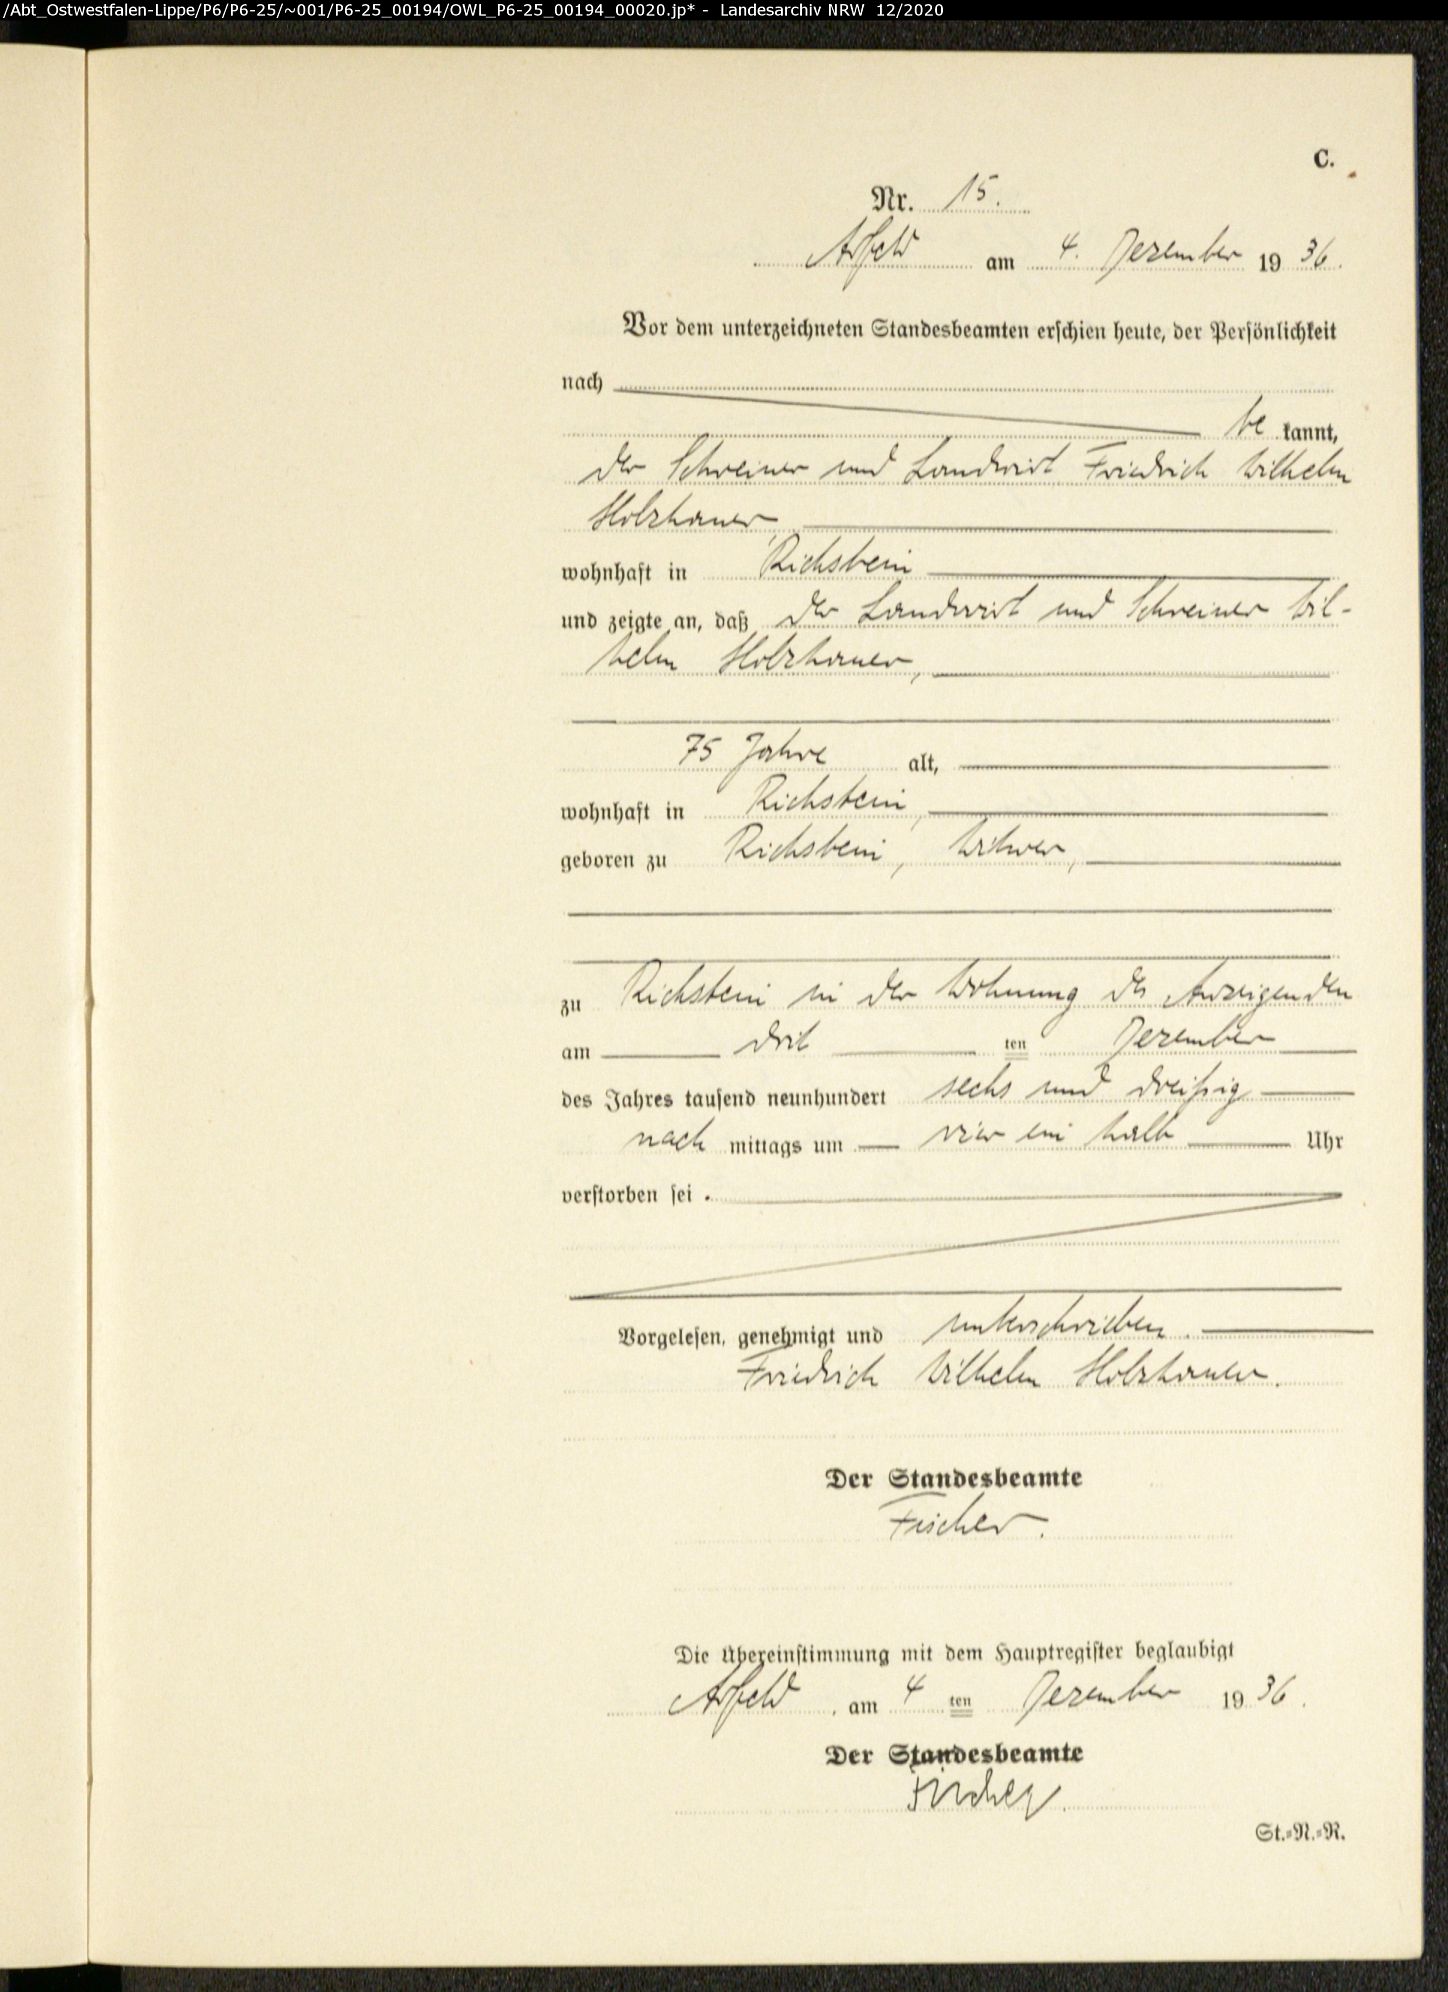 /Abt_Ostwestfalen-Lippe/P6/P6-25/~001/P6-25_00194/OWL_P6-25_00194_00020.jp* - Landesarchiv NRW 12/2020
C.
Nr. 15.
Arfeld am 4. Dezember 1936.
Vor dem unterzeichneten Standesbeamten erschien heute, der Persönlichkeit
nach
be kannt,
der Schreiner und Landwirt Friedrich Wilhelm
Holzhauer,
wohnhaft in Richstein
und zeigte an, daß der Landwirt und Schreiner Wil-
helm Holzhauer,
75 Jahre alt,
wohnhaft in Richstein,
geboren zu Richstein, Witwer,
zu Richstein in der Wohnung des Anzeigenden
am drit ten Dezember
des Jahres tausend neunhundert sechs und dreißig
nach mittags um vier ein halb Uhr
verstorben sei.
Vorgelesen, genehmigt und unterschrieben.
Friedrich Wilhelm Holzhauer.
Der Standesbeamte
Fischer.
Die Übereinstimmung mit dem Hauptregister beglaubigt
Arfeld, am 4 ten Dezember 1936.
Der Standesbeamte
Fischer.
St.=N.=R.